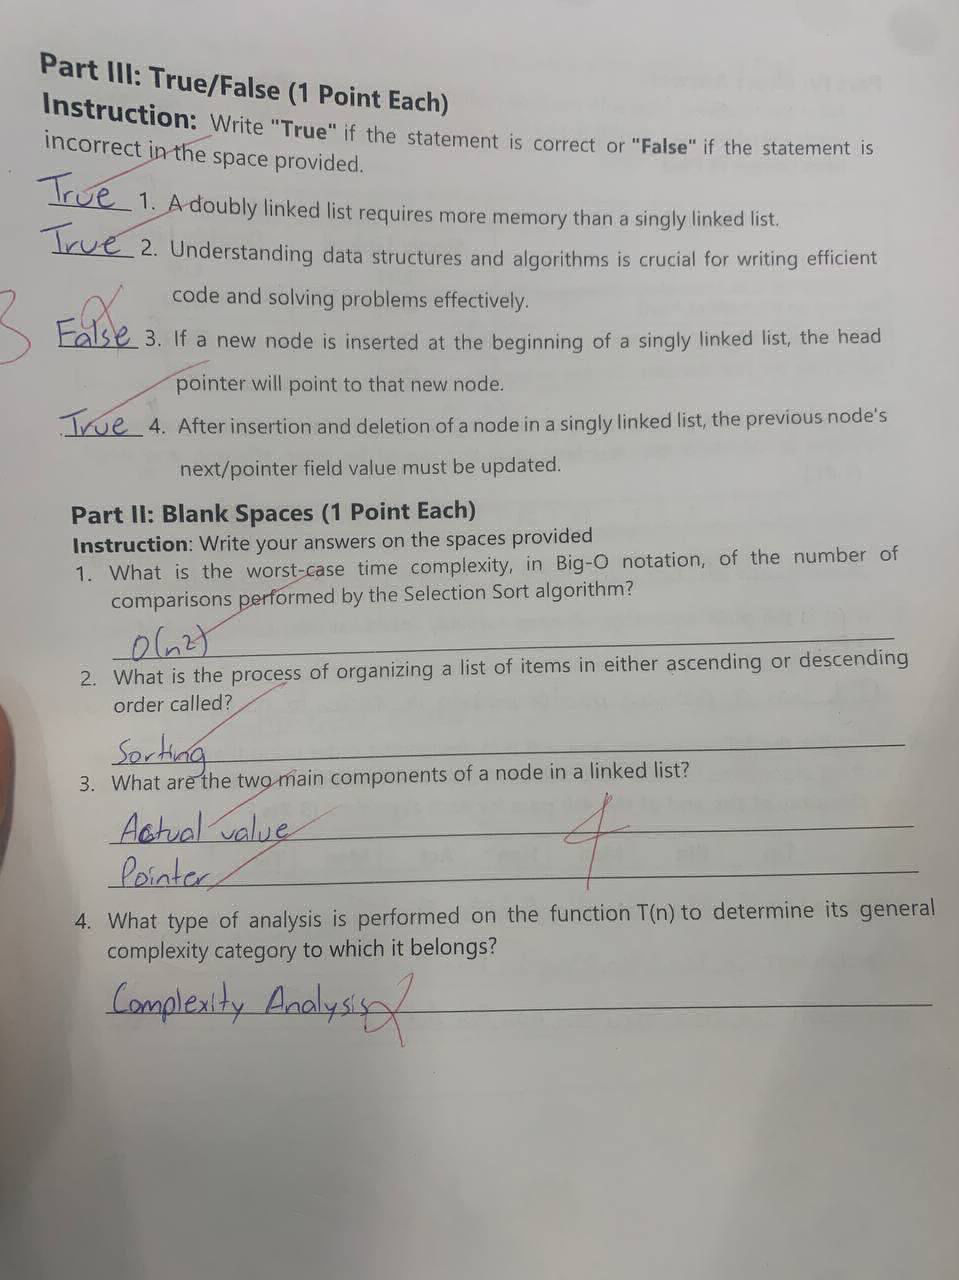 Part III: True/False (1 Point Each)
Instruction: Write "True" if the statement is correct or "False" if the statement is
incorrect in the space provided.
True 1. A doubly linked list requires more memory than a singly linked list.
True 2. Understanding data structures and algorithms is crucial for writing efficient
code and solving problems effectively.
3
False 3. If a new node is inserted at the beginning of a singly linked list, the head
pointer will point to that new node.
True 4. After insertion and deletion of a node in a singly linked list, the previous node's
next/pointer field value must be updated.
Part II: Blank Spaces (1 Point Each)
Instruction: Write your answers on the spaces provided
1. What is the worst-case time complexity, in Big-O notation, of the number of
comparisons performed by the Selection Sort algorithm?
O(n2)
2. What is the process of organizing a list of items in either ascending or descending
order called?
Sorting
3. What are the two main components of a node in a linked list?
Actual value
4
Pointer
4. What type of analysis is performed on the function T(n) to determine its general
complexity category to which it belongs?
Complexity Analysis